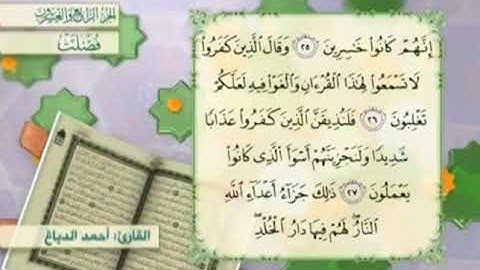 الجزء الرابع والعشرون
فصلت
إِنَّهُمْ كَانُوا۟ خَٰسِرِينَ ٢٥ وَقَالَ ٱلَّذِينَ كَفَرُوا۟
لَا تَسْمَعُوا۟ لِهَٰذَا ٱلْقُرْءَانِ وَٱلْغَوْا۟ فِيهِ لَعَلَّكُمْ
تَغْلِبُونَ ٢٦ فَلَنُذِيقَنَّ ٱلَّذِينَ كَفَرُوا۟ عَذَابًا
شَدِيدًا وَلَنَجْزِيَنَّهُمْ أَسْوَأَ ٱلَّذِى كَانُوا۟
يَعْمَلُونَ ٢٧ ذَٰلِكَ جَزَآءُ أَعْدَآءِ ٱللَّهِ
ٱلنَّارُ ۖ لَهُمْ فِيهَا دَارُ ٱلْخُلْدِ ۖ
القارئ: أحمد الدباغ